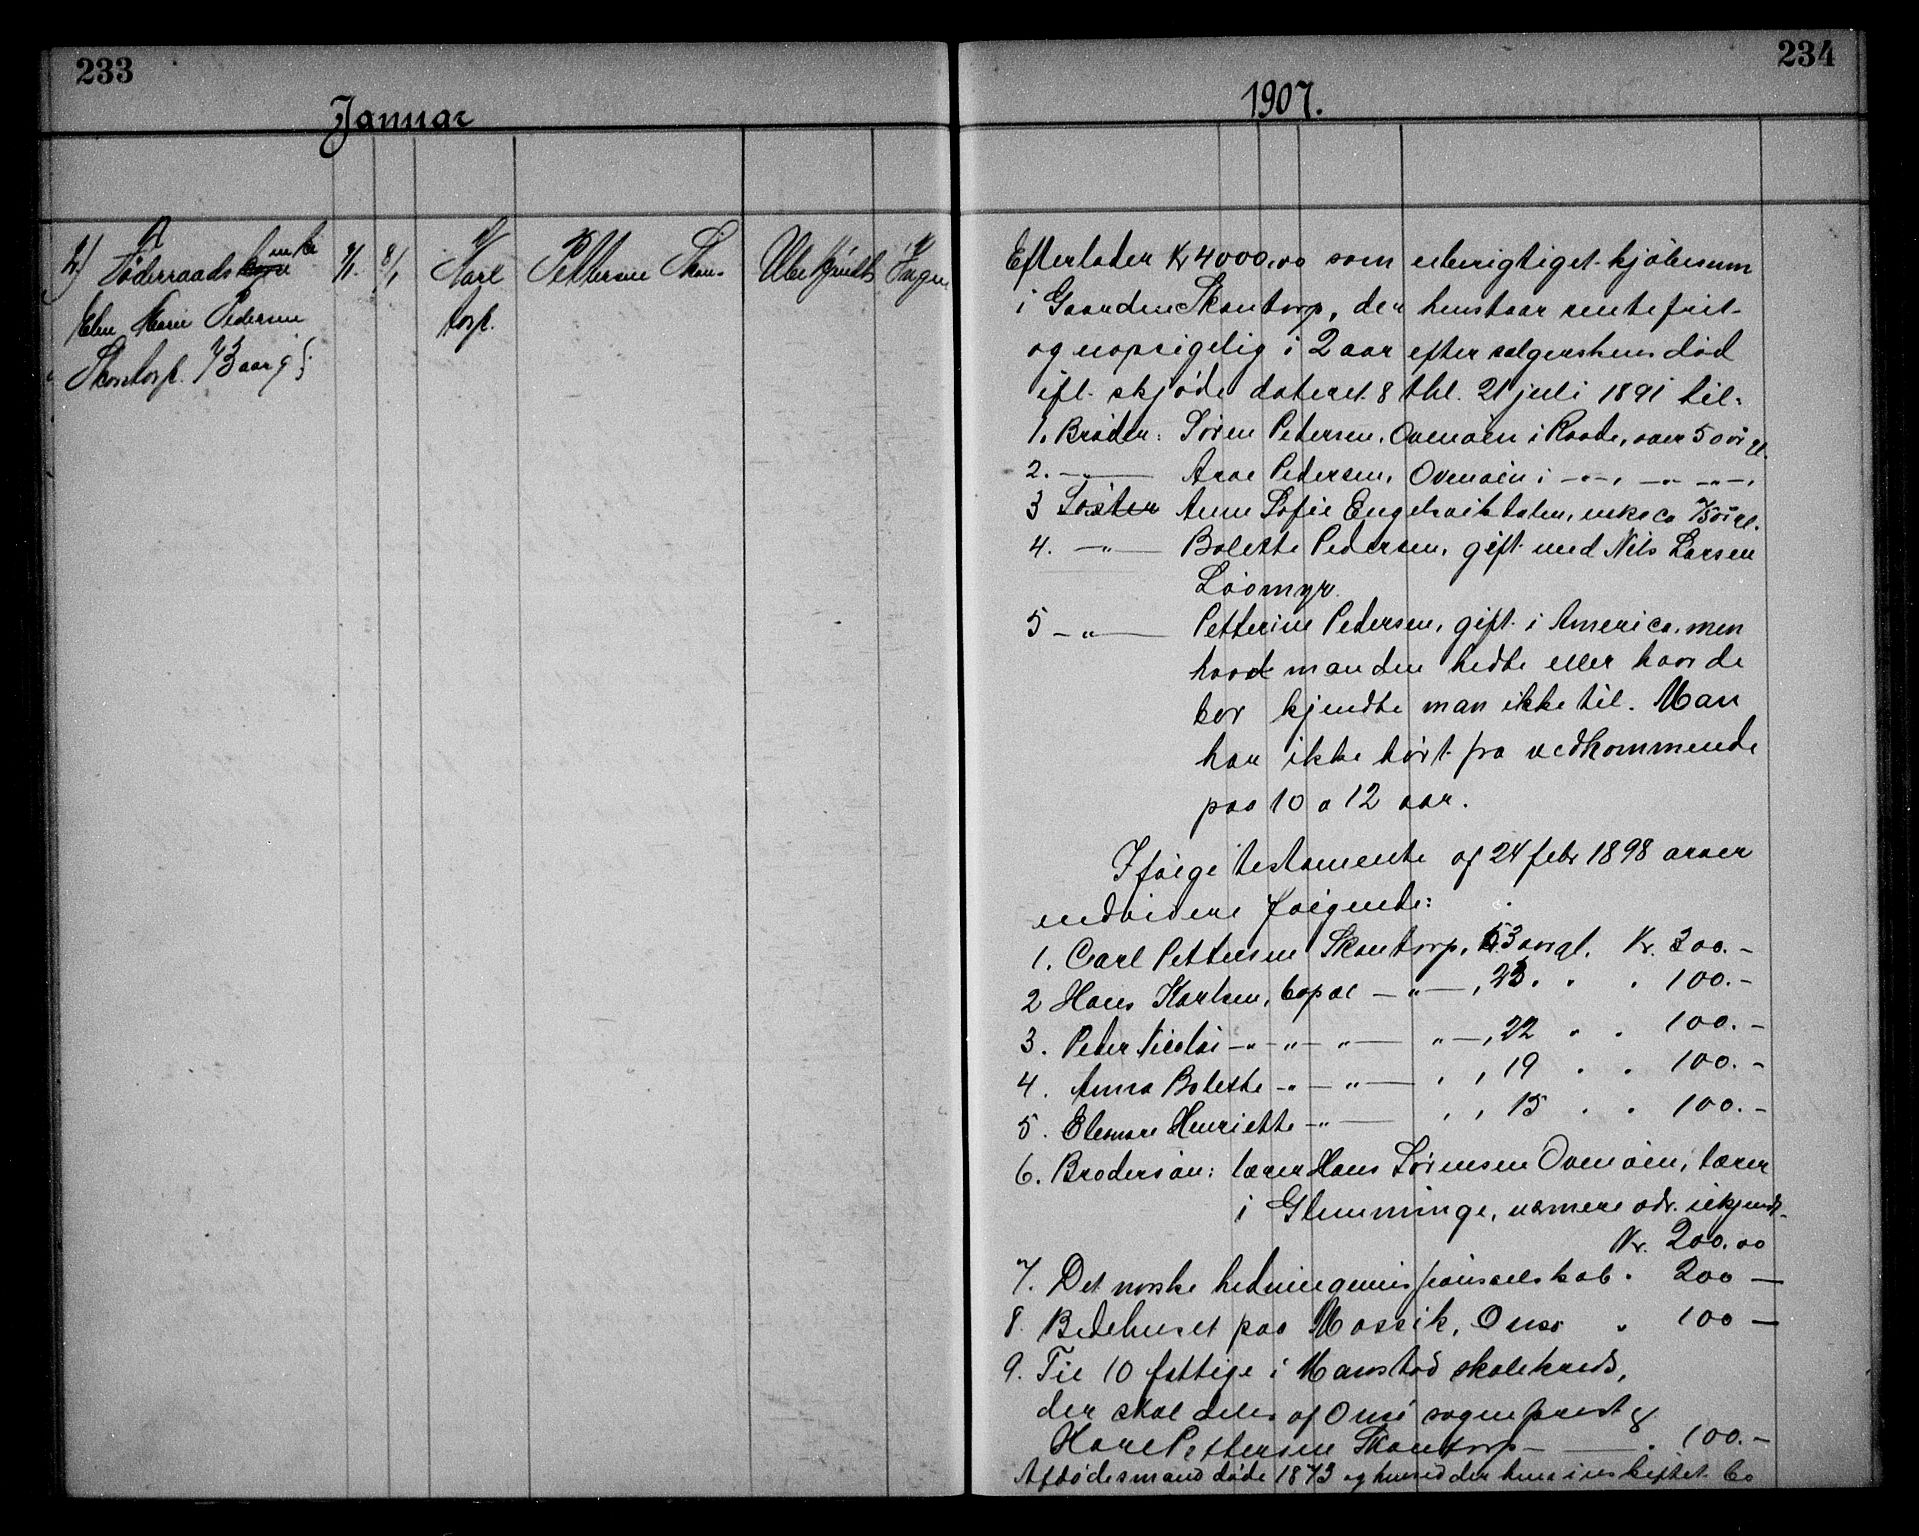 233
234
Januar
1907.
2) Føderraadsenke
Elen Marie Pedersen
Skontorp. 73 aar g.
8/1
Karl Pettersen Skon-
torp.
Ubekjendt
Ingen
Efterlader Kr 4000,00 som uberigtiget kjøbesum
i Gaarden Skontorp, der henstaar rentefrit
og uopsigelig i 2 aar efter sælgerskens død
ifl. skjøde dateret 8 thl. 21 juli 1891 til:
1. Broder: Søren Pedersen, Ovenøen i Raade, over 50 år gl.
2. —„— Arne Pedersen, Ovenøen i —„—, —„— —„—,
3 Søster Anne Sofie Engelsvikdalen, enke ca 75 år gl.
4. —„— Bolette Pedersen, gift med Nils Larsen
Løsmyr.
5 —„— Petterine Pedersen, gift i America, men
hvad manden hedte eller hvor de
bor kjendte man ikke til. Man
har ikke hørt fra vedkommende
paa 10 a 12 aar.
Ifølge testamente af 24 febr 1898 arver
endvidere følgende:
1. Carl Pettersen Skontorp, 53 aar gl. Kr. 300.-
2 Hans Karlsen, bopæl —„—, 23 „ „ 100.-
3. Peter Nicolai —„—„—„— „—, 22 „ „ 100.-
4. Anna Bolette —„—„— , , 19 „ „ 100.-
5. Elenore Henriette —„— , , 15 „ „ 100.-
6. Brodersøn: lærer Hans Sørensen Ovenøen, lærer
i Glemminge, nærmere adr. ukjendt.
Kr. 200.00
7. Det norske hedningemissionsselskab „ 200 —
8. Bedehuset paa Mossik, Onsø „ 100 —
9. Til 10 fattige i Manstad skolekreds,
der skal deles af Onsø sogneprest &
Karl Pettersen Skontorp — „ 100.-
Afdødes mand døde 1873 og hensidder hun i uskiftet bo